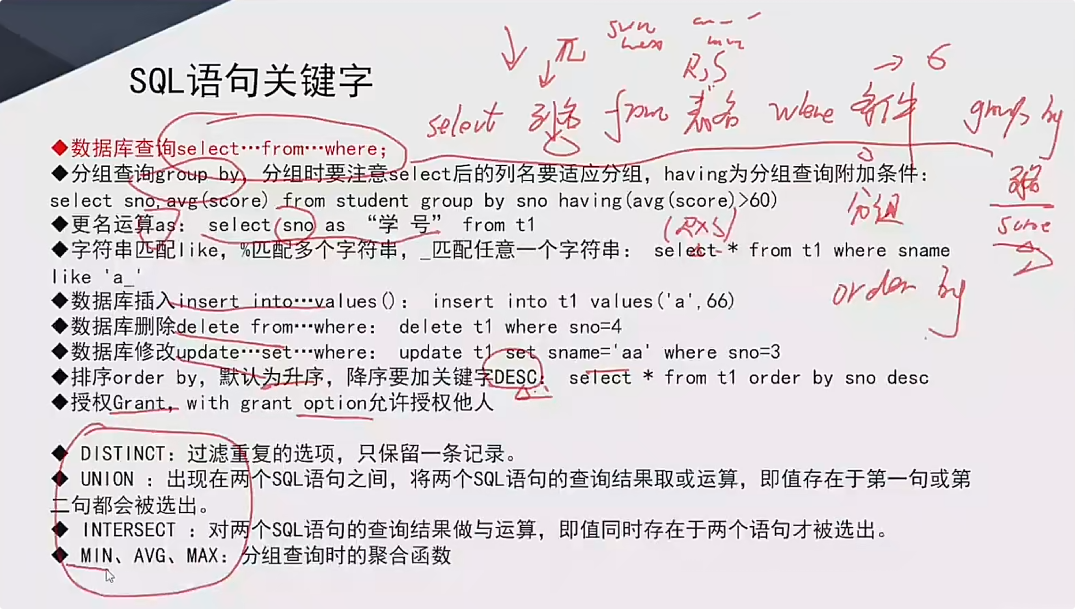 sum
max
min
π
R,S
→ 6
SQL语句关键字
select 列名 from 表名 where 条件 group by
◆数据库查询select…from…where;
◆分组查询group by, 分组时要注意select后的列名要适应分组, having为分组查询附加条件:
select sno,avg(score) from student group by sno having(avg(score)>60)
列名
分组
score
◆更名运算as: select sno as “学 号” from t1
(R×S)
◆字符串匹配like, %匹配多个字符串, _匹配任意一个字符串: select * from t1 where sname
like 'a_'
order by
◆数据库插入insert into…values(): insert into t1 values('a',66)
◆数据库删除delete from…where: delete t1 where sno=4
◆数据库修改update…set…where: update t1 set sname='aa' where sno=3
◆排序order by, 默认为升序, 降序要加关键字DESC: select * from t1 order by sno desc
◆授权Grant, with grant option允许授权他人
◆ DISTINCT: 过滤重复的选项, 只保留一条记录。
◆ UNION : 出现在两个SQL语句之间, 将两个SQL语句的查询结果取或运算, 即值存在于第一句或第
二句都会被选出。
◆ INTERSECT : 对两个SQL语句的查询结果做与运算, 即值同时存在于两个语句才被选出。
◆ MIN、AVG、MAX: 分组查询时的聚合函数